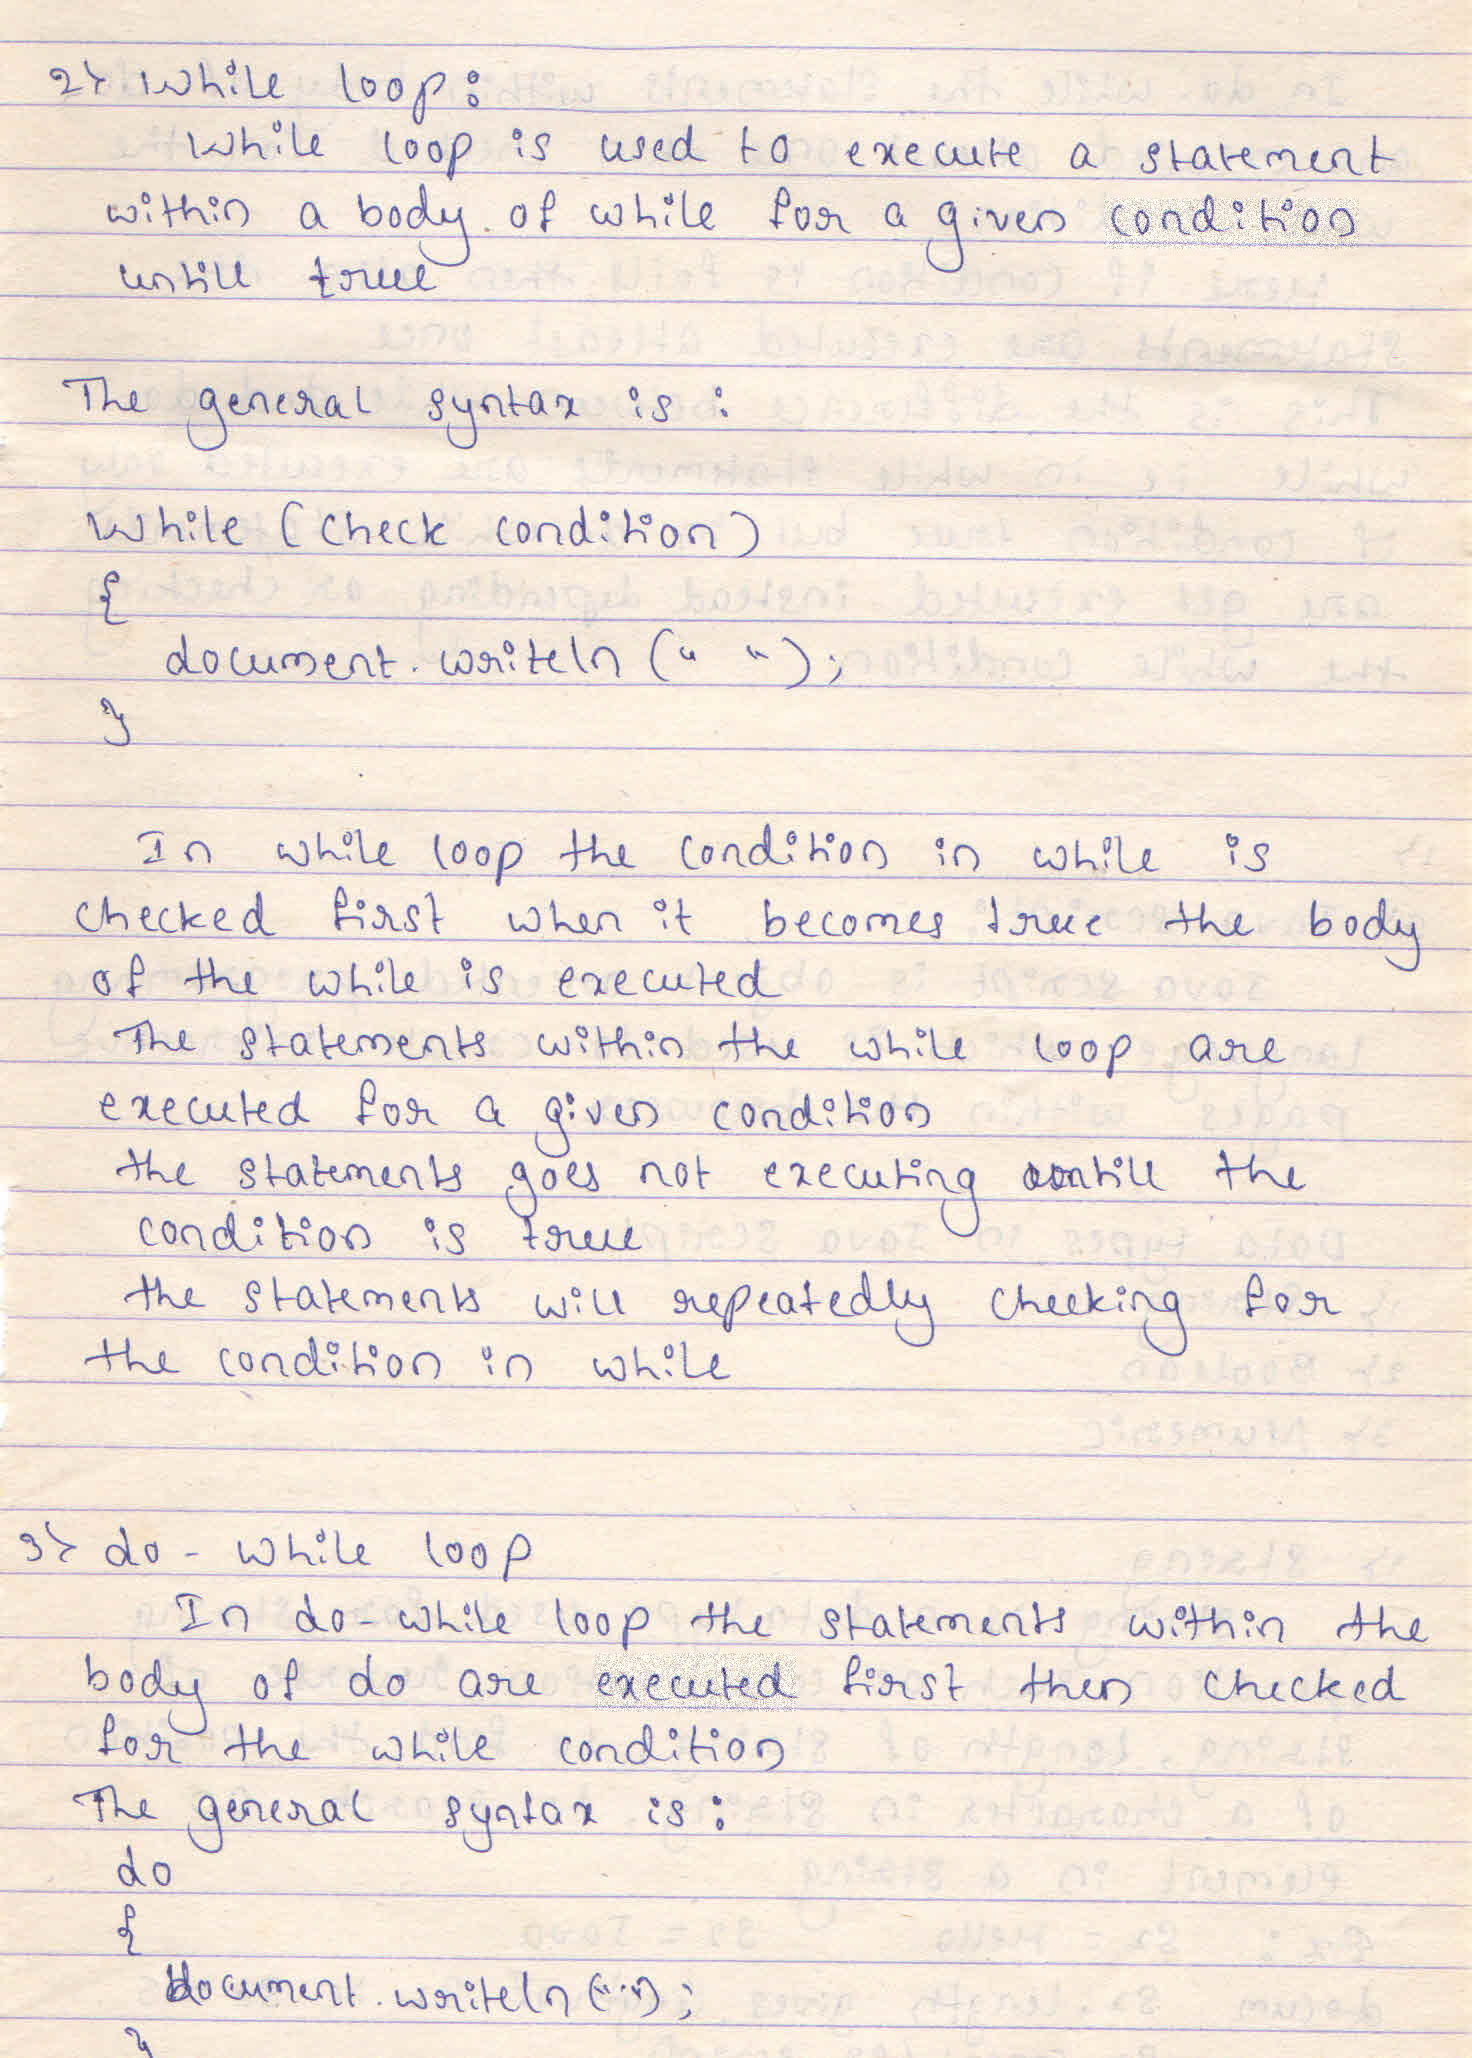 2> While loop:
While loop is used to execute a statement
within a body of while for a given condition
untill true
The general syntax is:
While (check condition)
{
document.writeln (" ");
}
In while loop the condition in while is
checked first when it becomes true the body
of the while is executed
The statements within the while loop are
executed for a given condition
the statements goes not executing untill the
condition is true
the statements will repeatedly checking for
the condition in while
3> do - while loop
In do-while loop the statements within the
body of do are executed first then checked
for the while condition
The general syntax is:
do
{
document.writeln("..");
}